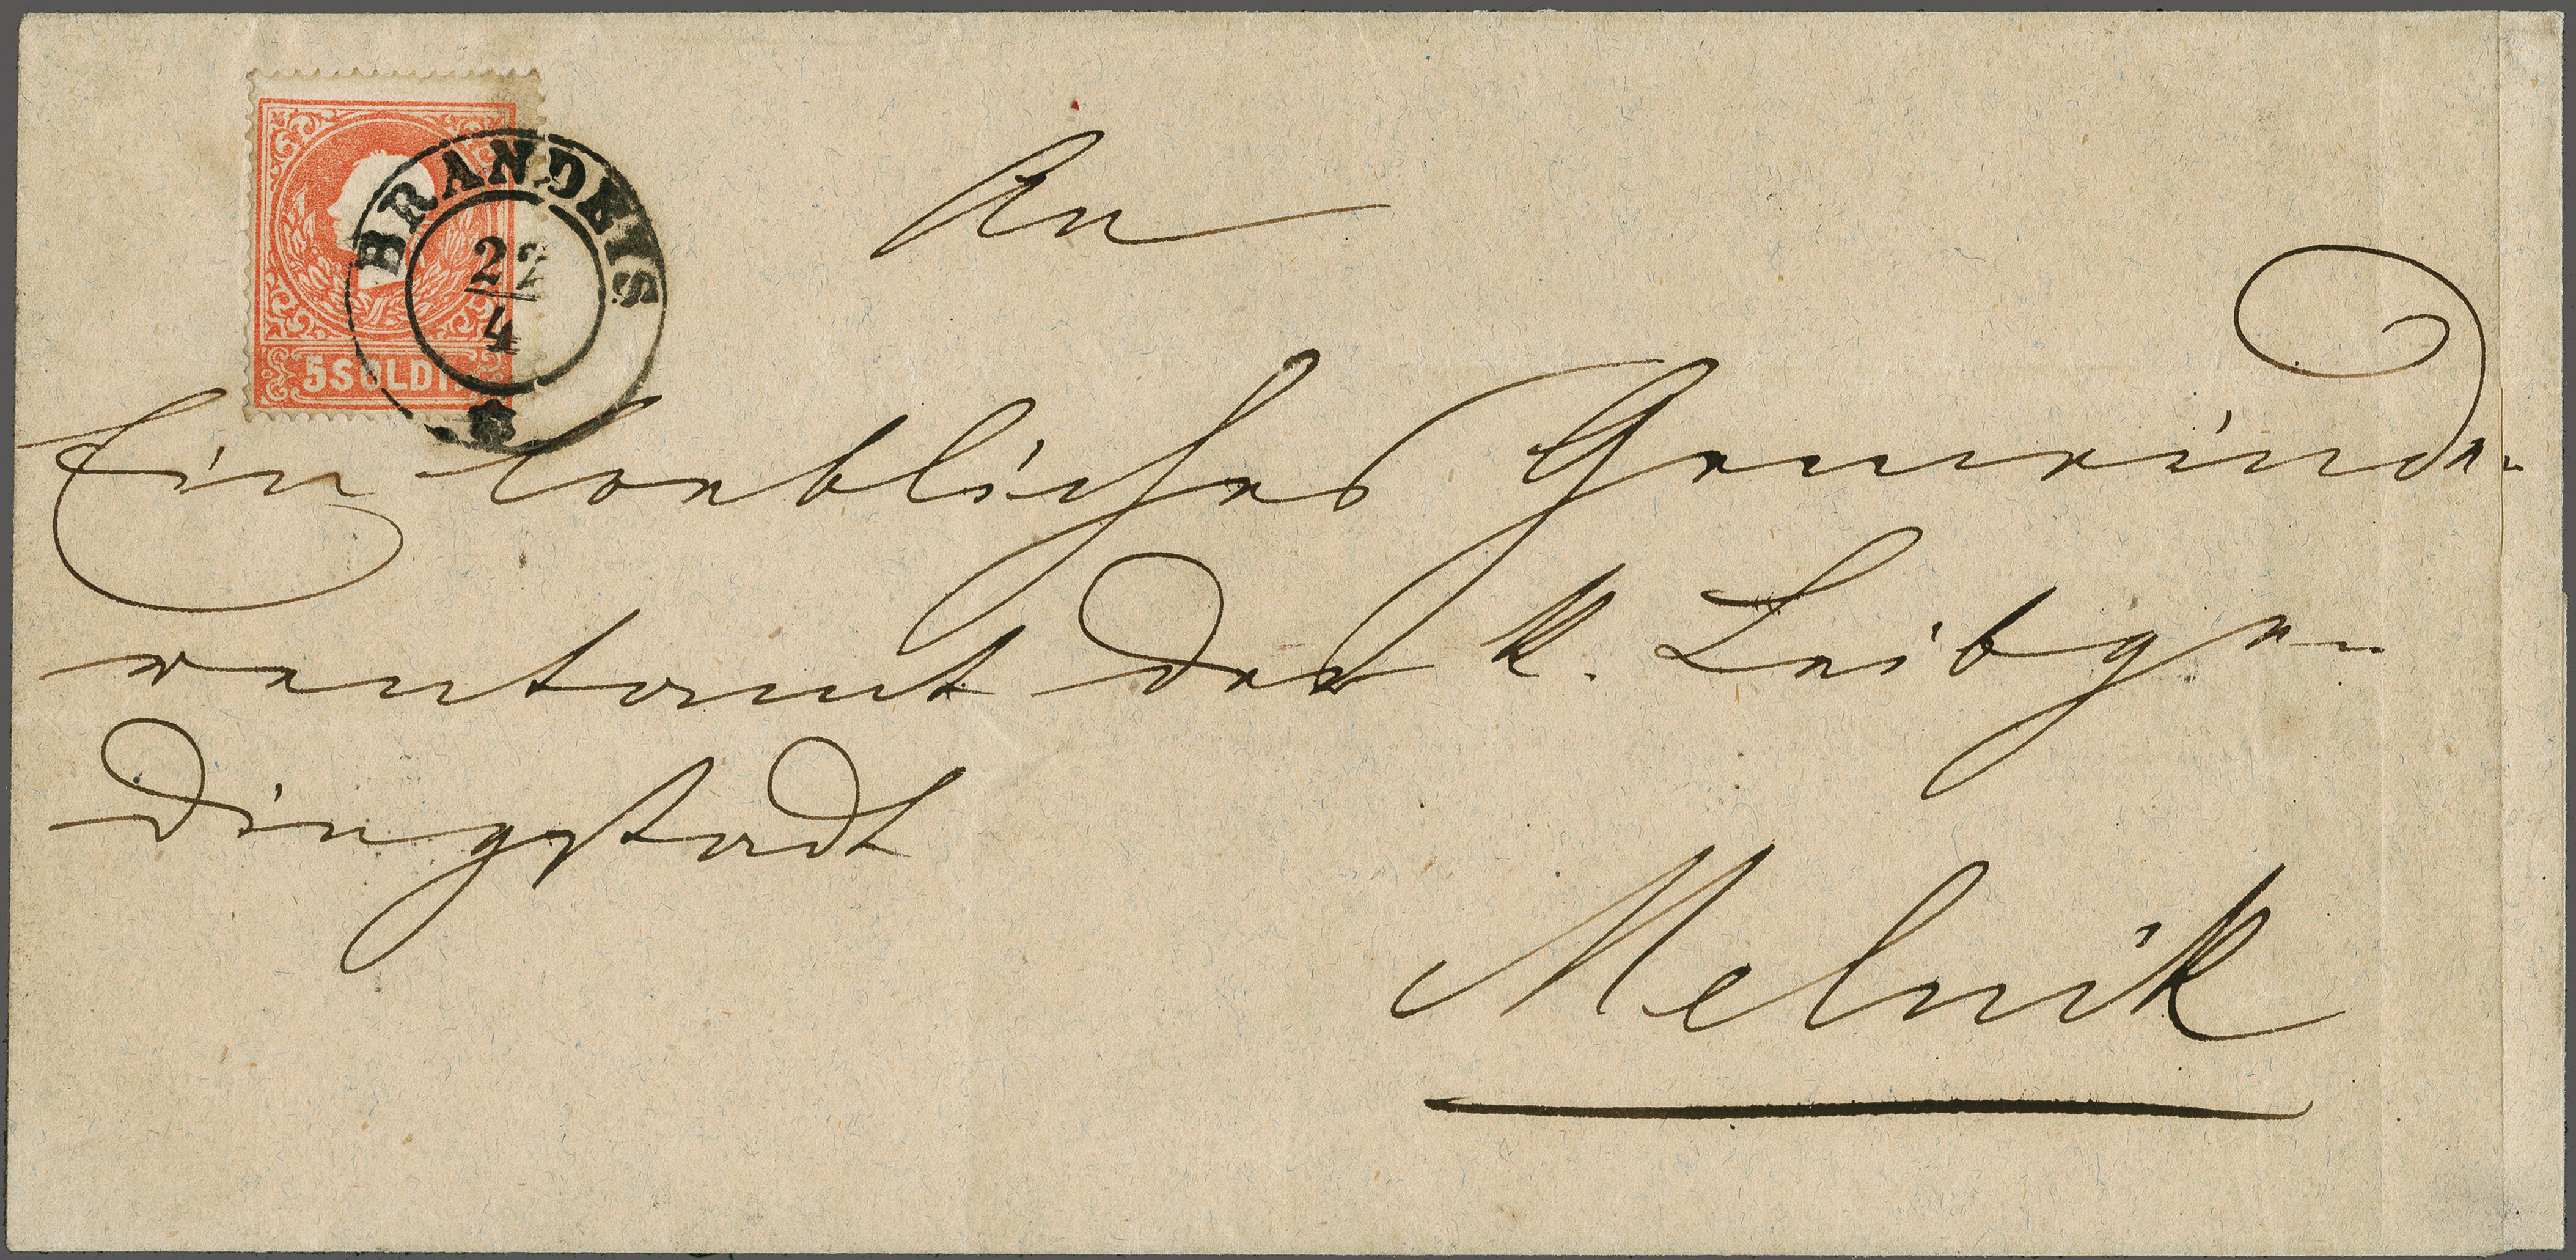 BRANDEIS
22
4
5 SOLDI.
An
Ein loebliches Gemeinde-
rentamt der k. Leibge-
dingstadt
Melnik